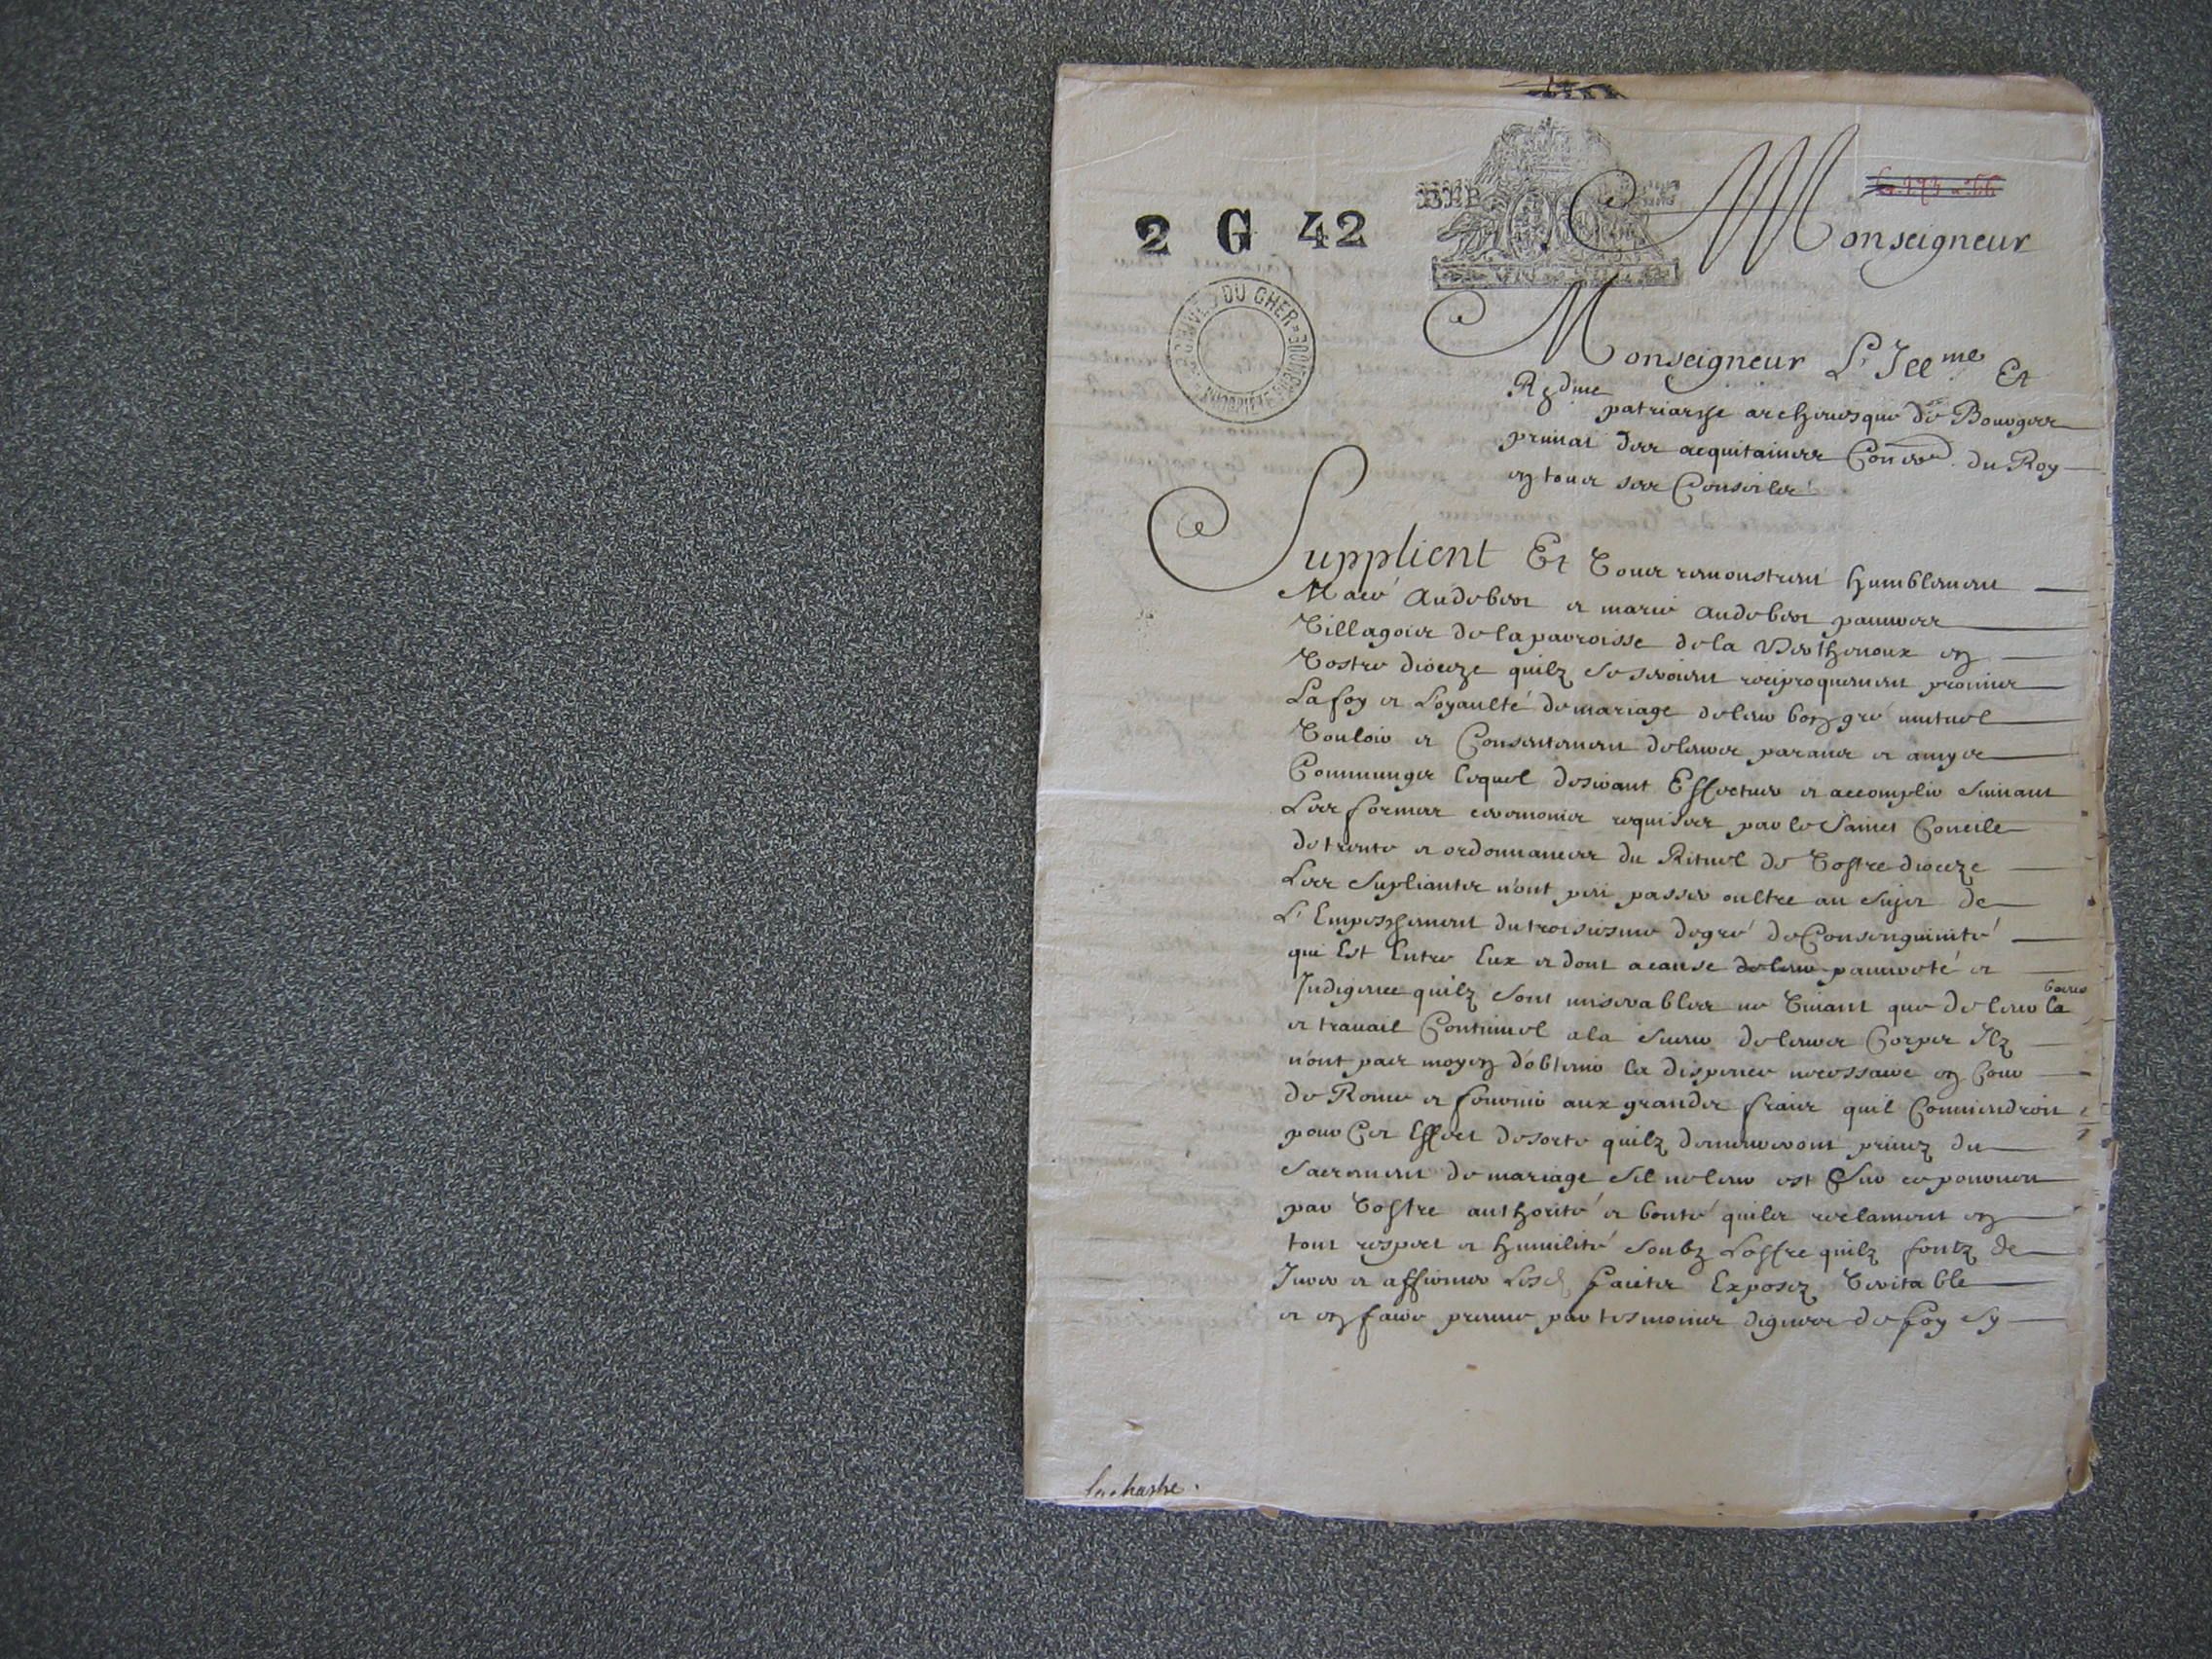 2 G 42
ARCHIVES DU CHER = PROPRIÉTÉ PUBLIQUE
Monseigneur
Monseigneur L'Illme Et
Rdme
patriarche archevesque de Bourges
primat des acquitaines Coner du Roy
en tous ses Conseilz
Supplient Et Vous remonstrent humblement
Macé Audebert et marie Audebert pauvres
Villageois de la parroisse de la Berthenoux en
Vostre dioceze quilz se seroient reciproquement promis
La foy et Loyaulté de mariage de leur bon gré mutuel
Vouloir et Consentement de leurs parans et amys
Communs lequel desirant Effectuer et accomplir suivant
Les formes ceremonies requises par le Sainct Concile
de trente et ordonnances du Rituel de Vostre dioceze
Les Supliants n'ont peu passer oultre au sujet de
L'Empeschement du troisiesme degré de Consenguinité
qui Est Entre Eux et dont a cause de leur pauvreté et
Indigence quilz sont miserables ne Vivant que de leur la beur
et travail Continuel a la sueur de leurs Corps Ilz
n'ont pas moyen d'obtenir la dispence necessaire en Cour
de Rome et fournir aux grands frais quil Conviendroit
pour Cet Effect de sorte quilz demeureront privez du
Sacrement de mariage sil ne leur est sur ce pourveu
par Vostre authorité et bonté quils reclament en
tout respect et humilité soubz L'offre quilz fontz de
Jurer et affirmer Lesd faicts Exposez Veritable
et en faire preuve par tesmoins dignes de foy sy
lachastre.